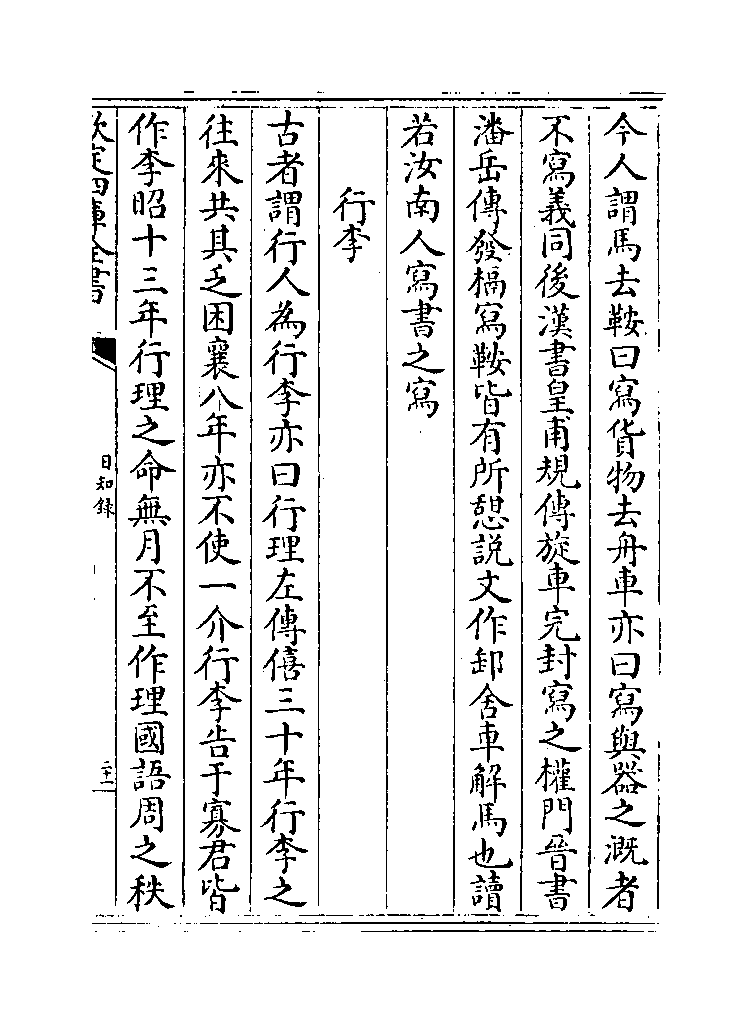 今人謂馬去鞍曰寫貨物去舟車亦曰寫與器之溉者
不寫義同後漢書皇甫規傳旋車完封寫之權門晉書
潘岳傳發槅寫鞍皆有所憇説文作卸舍車解馬也讀
若汝南人寫書之寫
行李
古者謂行人為行李亦曰行理左傳僖三十年行李之
往來共其乏困襄八年亦不使一介行李告于寡君皆
作李昭十三年行理之命無月不至作理國語周之秩
欽定四庫全書
日知錄
二十一